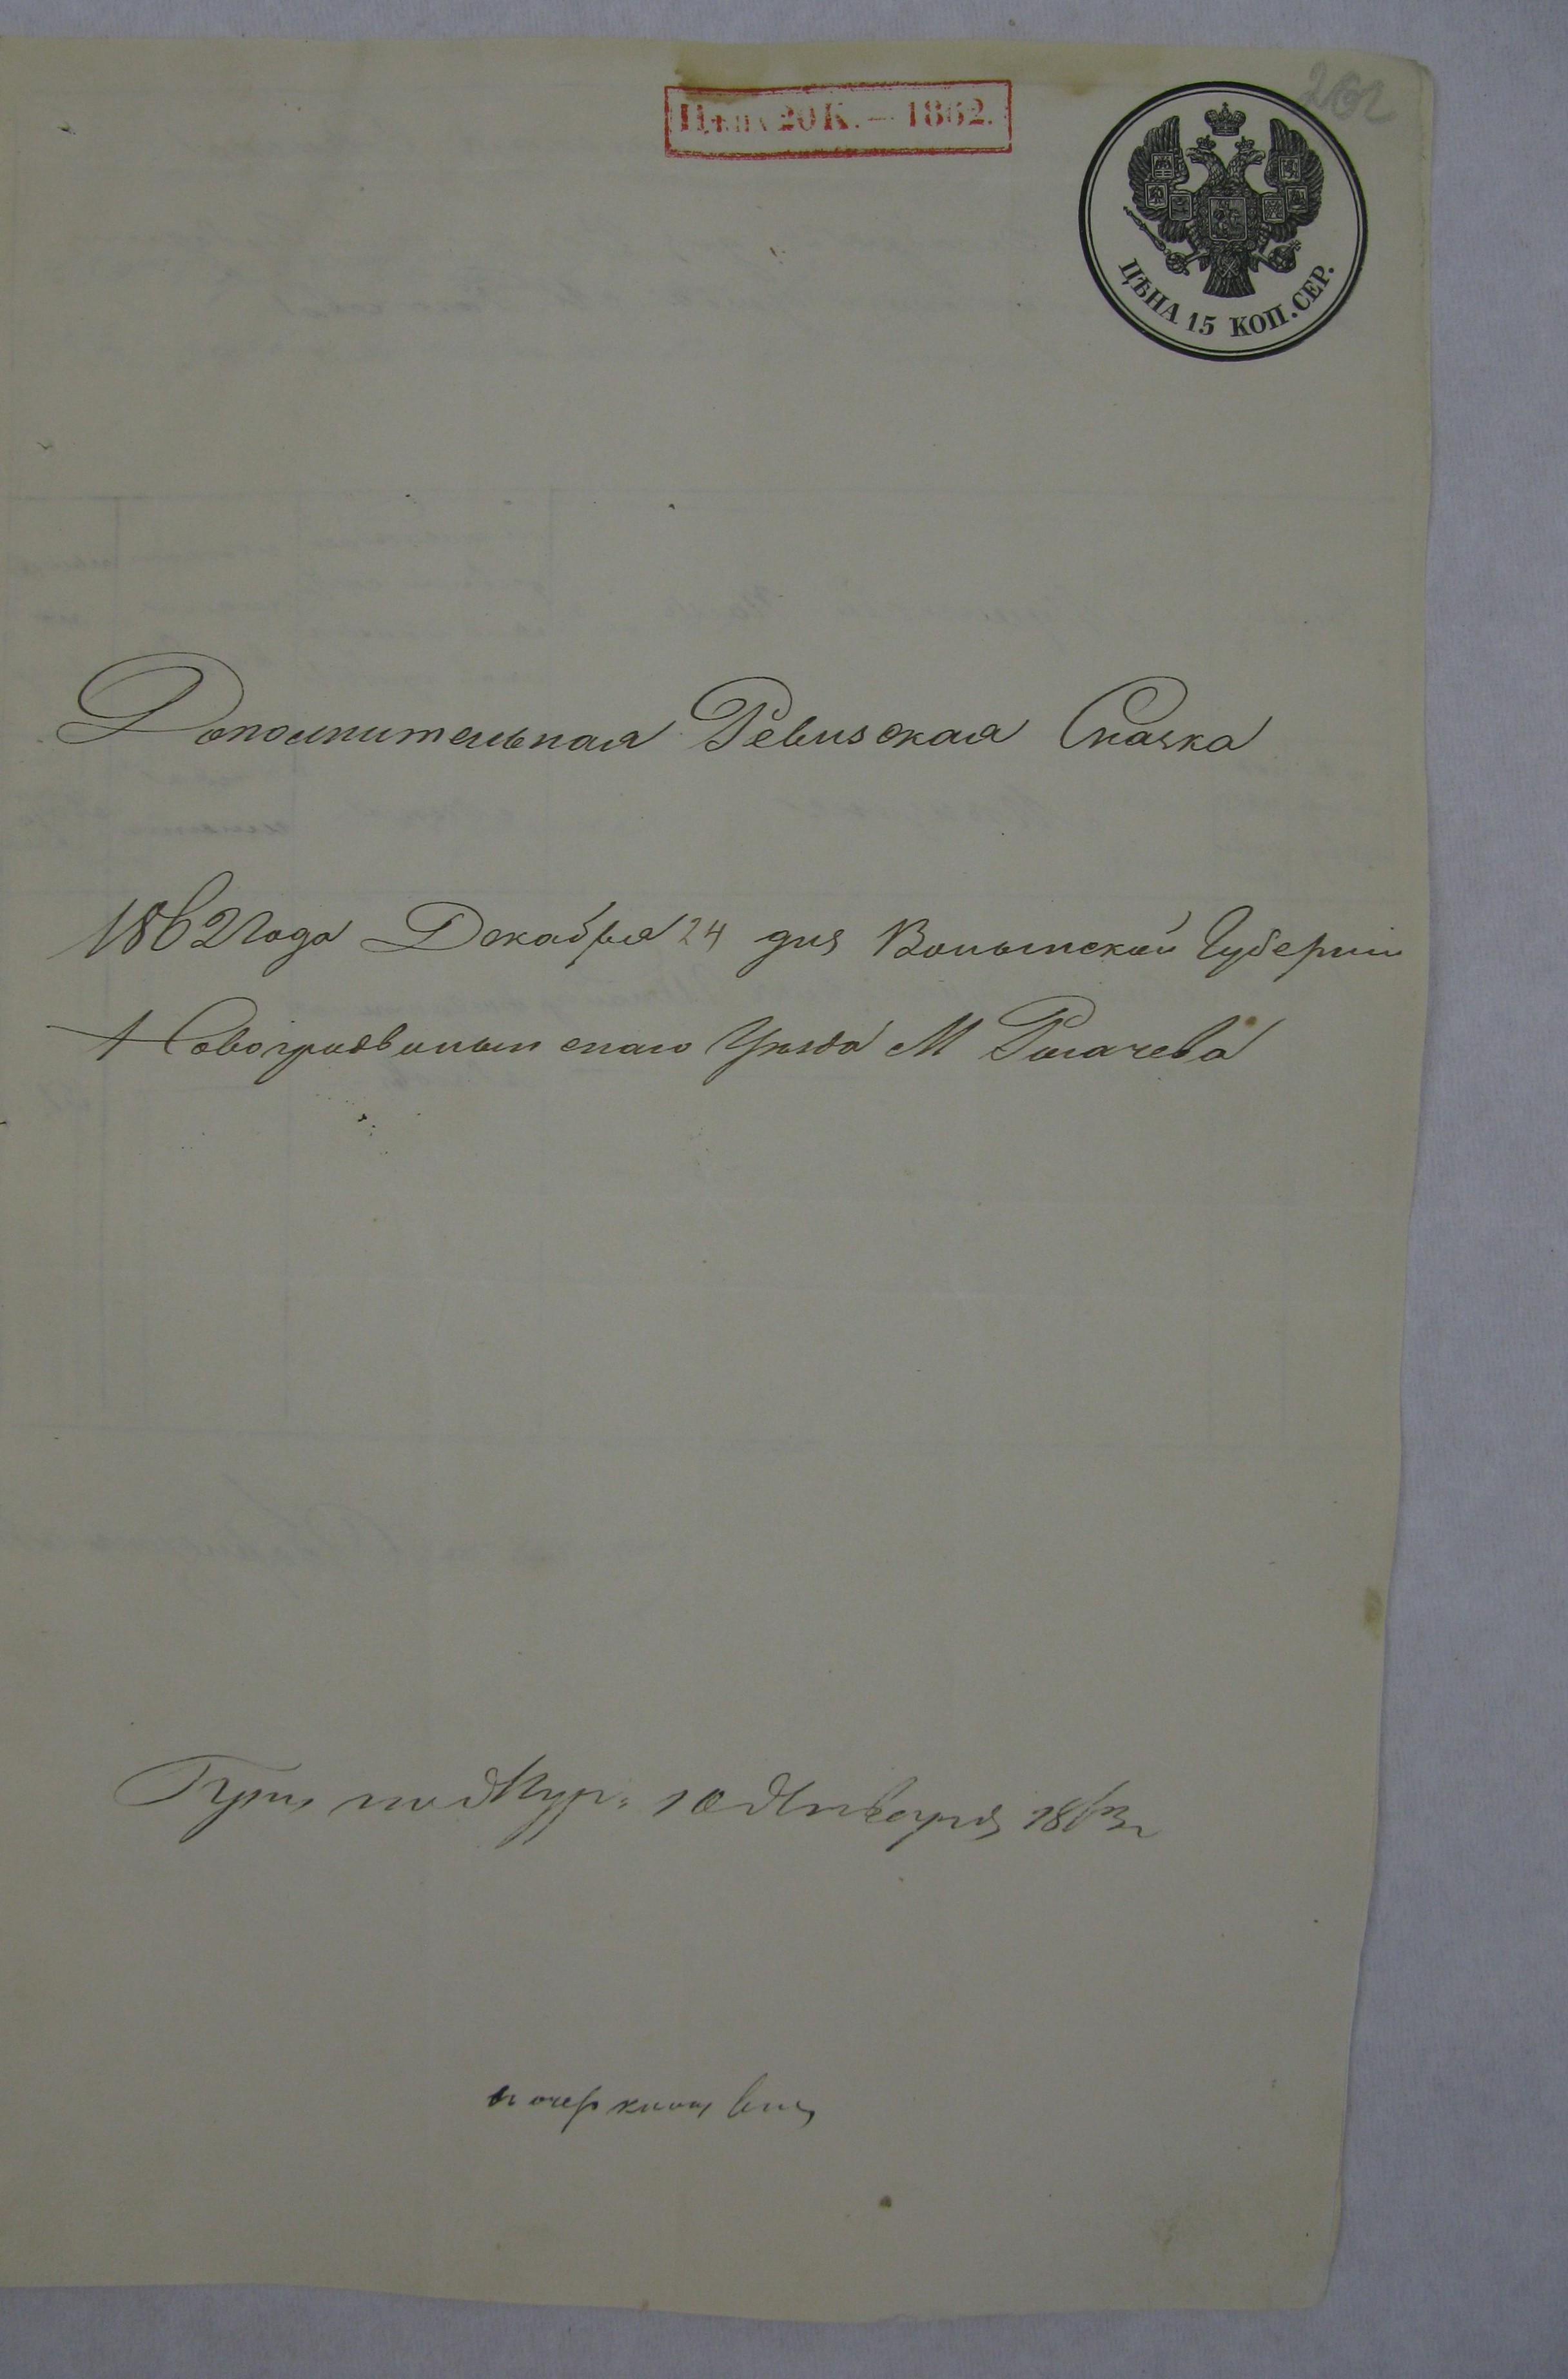 262
Цѣна 20 К. — 1862.
ЦѢНА 15 КОП. СЕР.
Дополнительная Ревизская Сказка
1862 года Декабря 24 дня Волынской Губернии
Новоградволынскаго Уезда М Рогачева
10 Января 1863 г